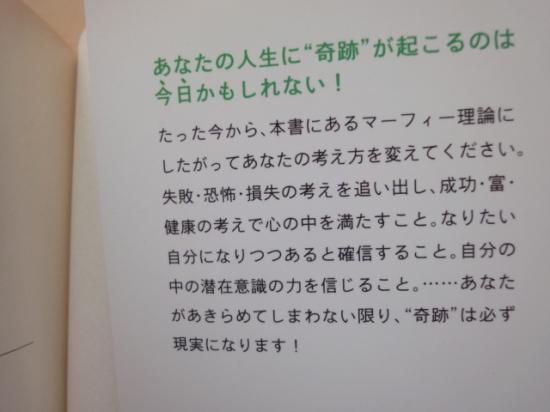 あなたの人生に“奇跡”が起こるのは
今日かもしれない！
たった今から、本書にあるマーフィー理論に
したがってあなたの考え方を変えてください。
失敗・恐怖・損失の考えを追い出し、成功・富・
健康の考えで心の中を満たすこと。なりたい
自分になりつつあると確信すること。自分の
中の潜在意識の力を信じること。……あなた
があきらめてしまわない限り、“奇跡”は必ず
現実になります！